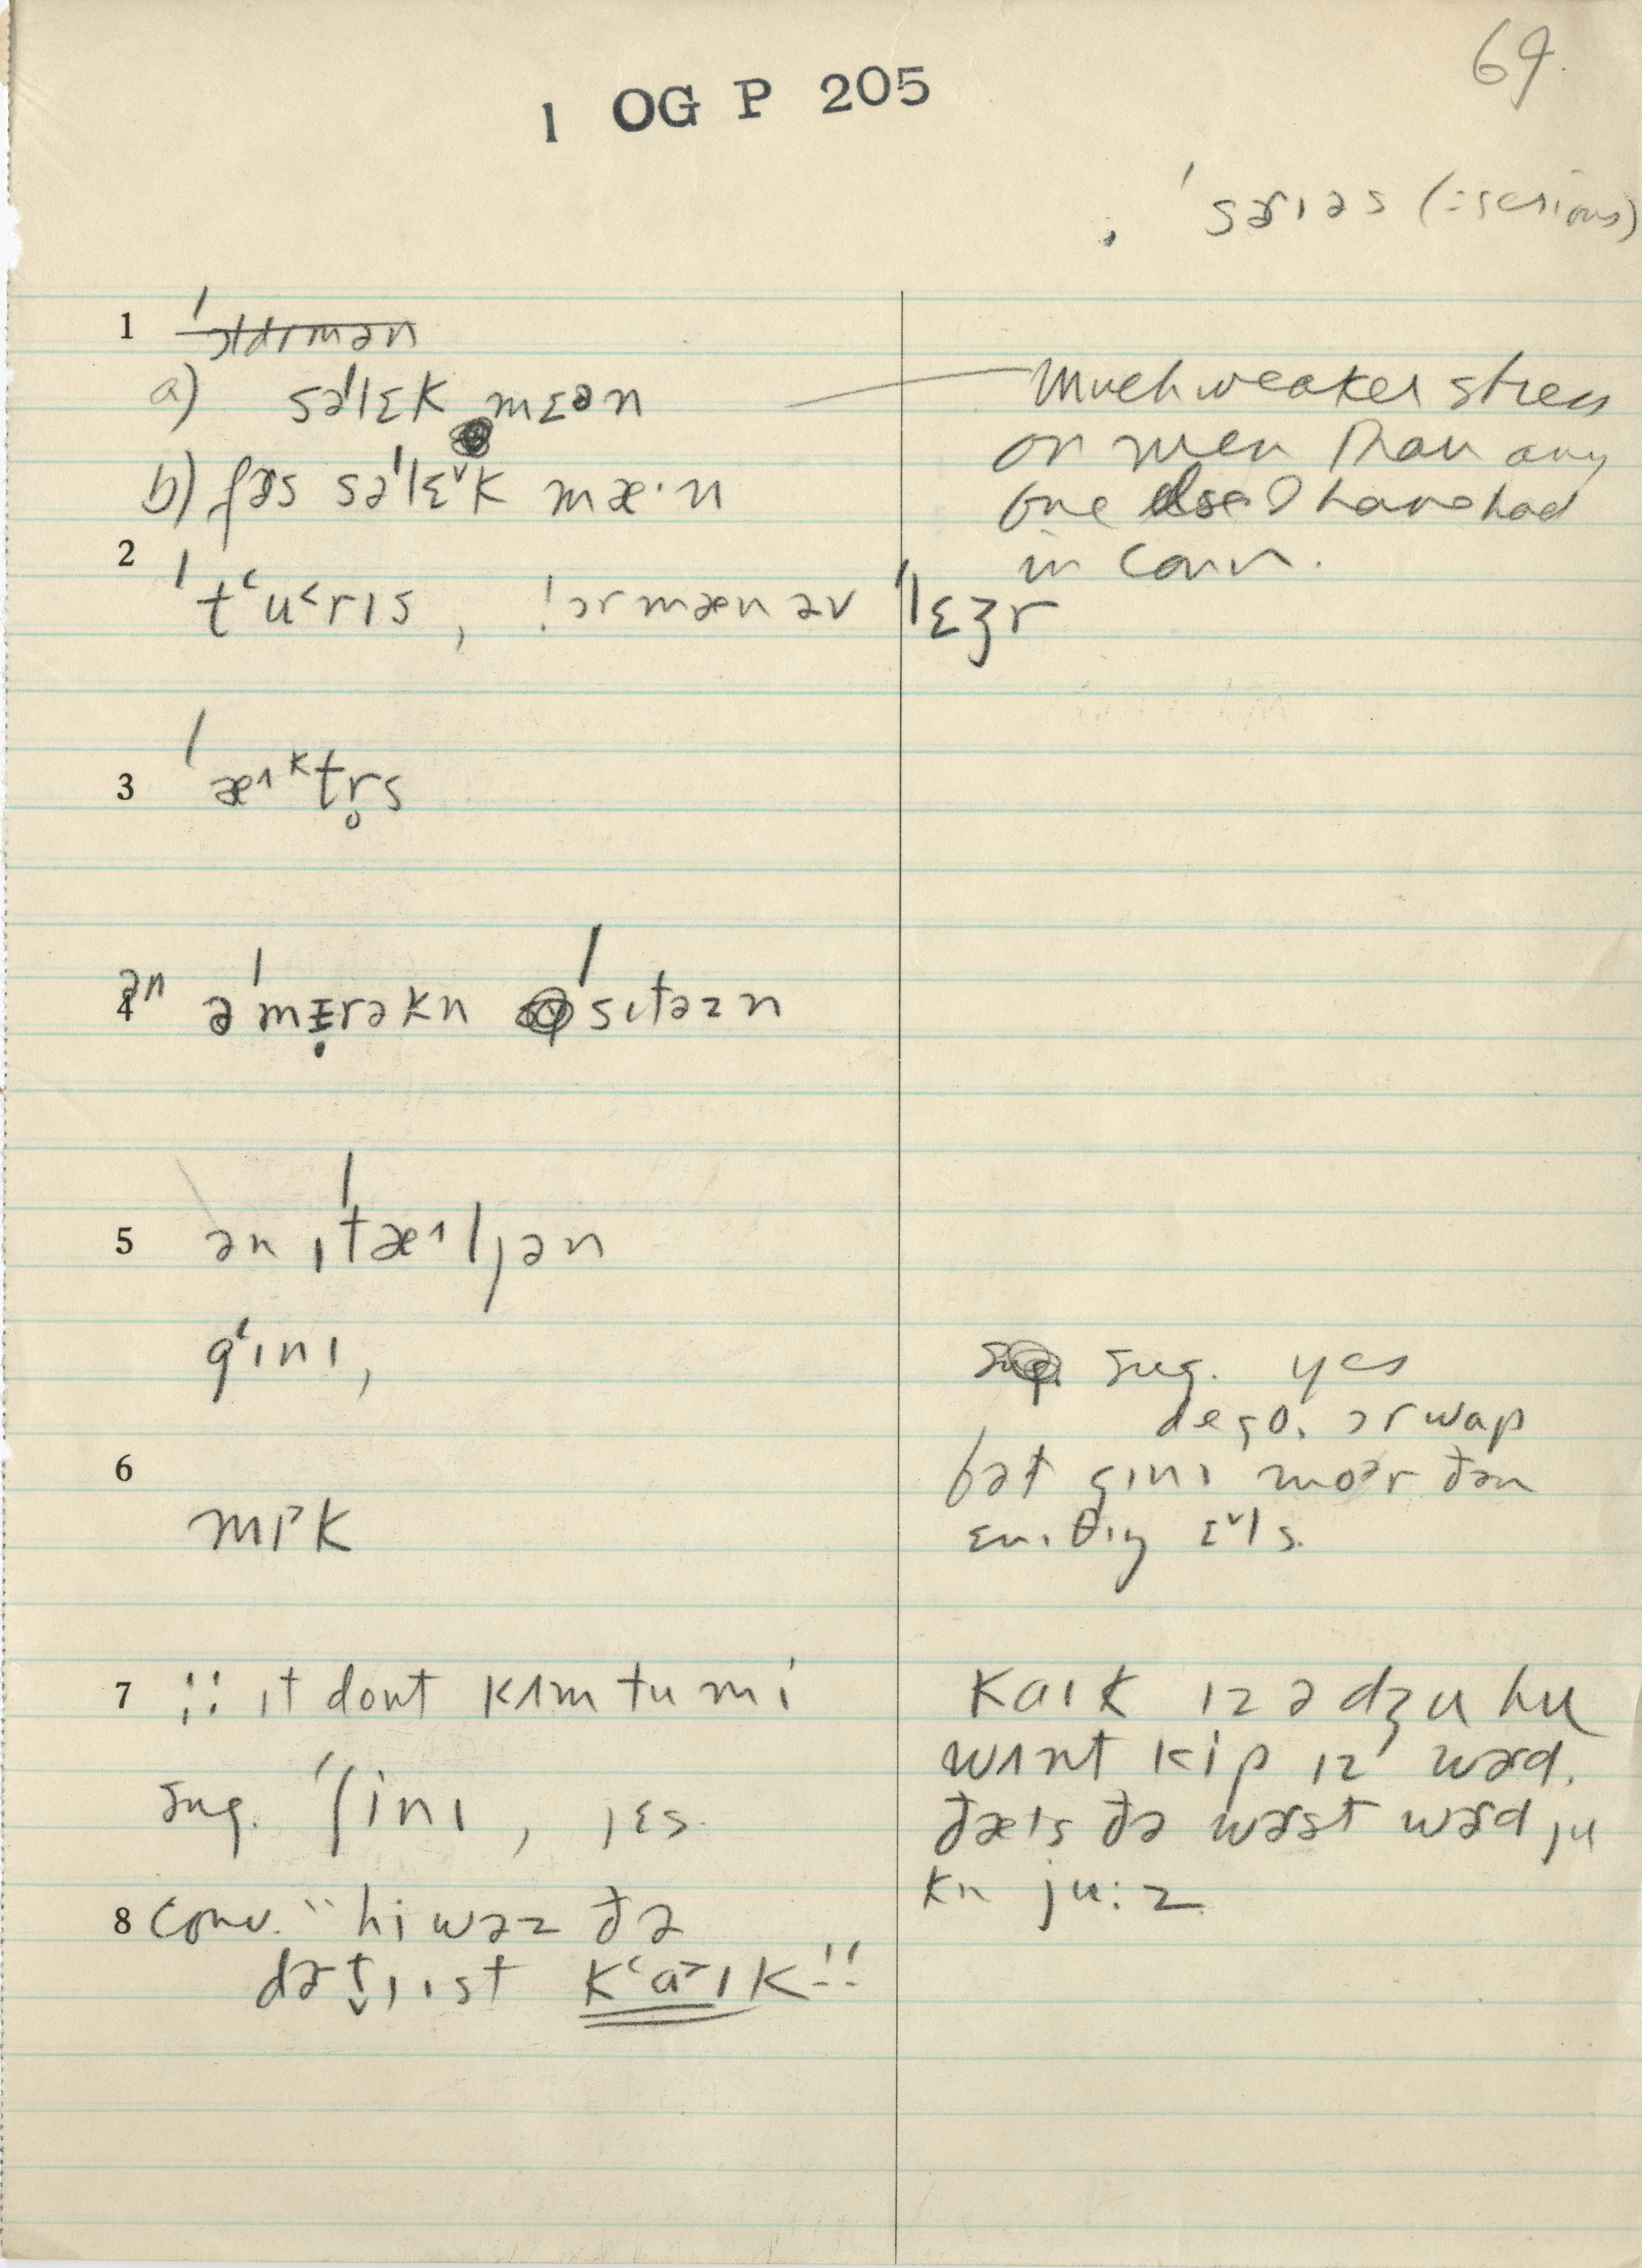 69.
1 OG P 205
ˈsɚɪəs (= serious)
1 ˈɔldɚmən
a) səˈlɛk mɛən
Much weaker stress
on men than any
one else I have had
in Conn.
b) fɚs səˈlɛ˅k mæ·n
2 ˈtʻu˂rɪs, ˈɔr mæn əv ˈlɛʒr
3 ˈæ˄ᵏtr̥s
4 ən əˈmɛ̣rəkn ˈsɪtəzn
5 ən ɪˈtæ˄ljən
gʻɪnɪ,
sug. yes
dego, ɔr wap
bət gɪnɪ moər ðən
ɛnɪθɪŋ ɛ˅ls.
6
mɪ˃k
7 "ɪt dont kʌm tu mi"
sug. ˈʃinɪ, jɛs.
kaɪk ɪz ə dʒu hu
wʌnt kip ɪz wɚd.
ðæts ðə wɚst wɚd ju
kn ju:z.
8 conv. "hi wəz ðə
dɚt̬jɪst kʻa˃ɪk"